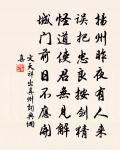 揚州昨夜有人來
誤把忠良按劍猜
怪道使君無見解
城門前日不應開
文天祥出真州詞典網
真